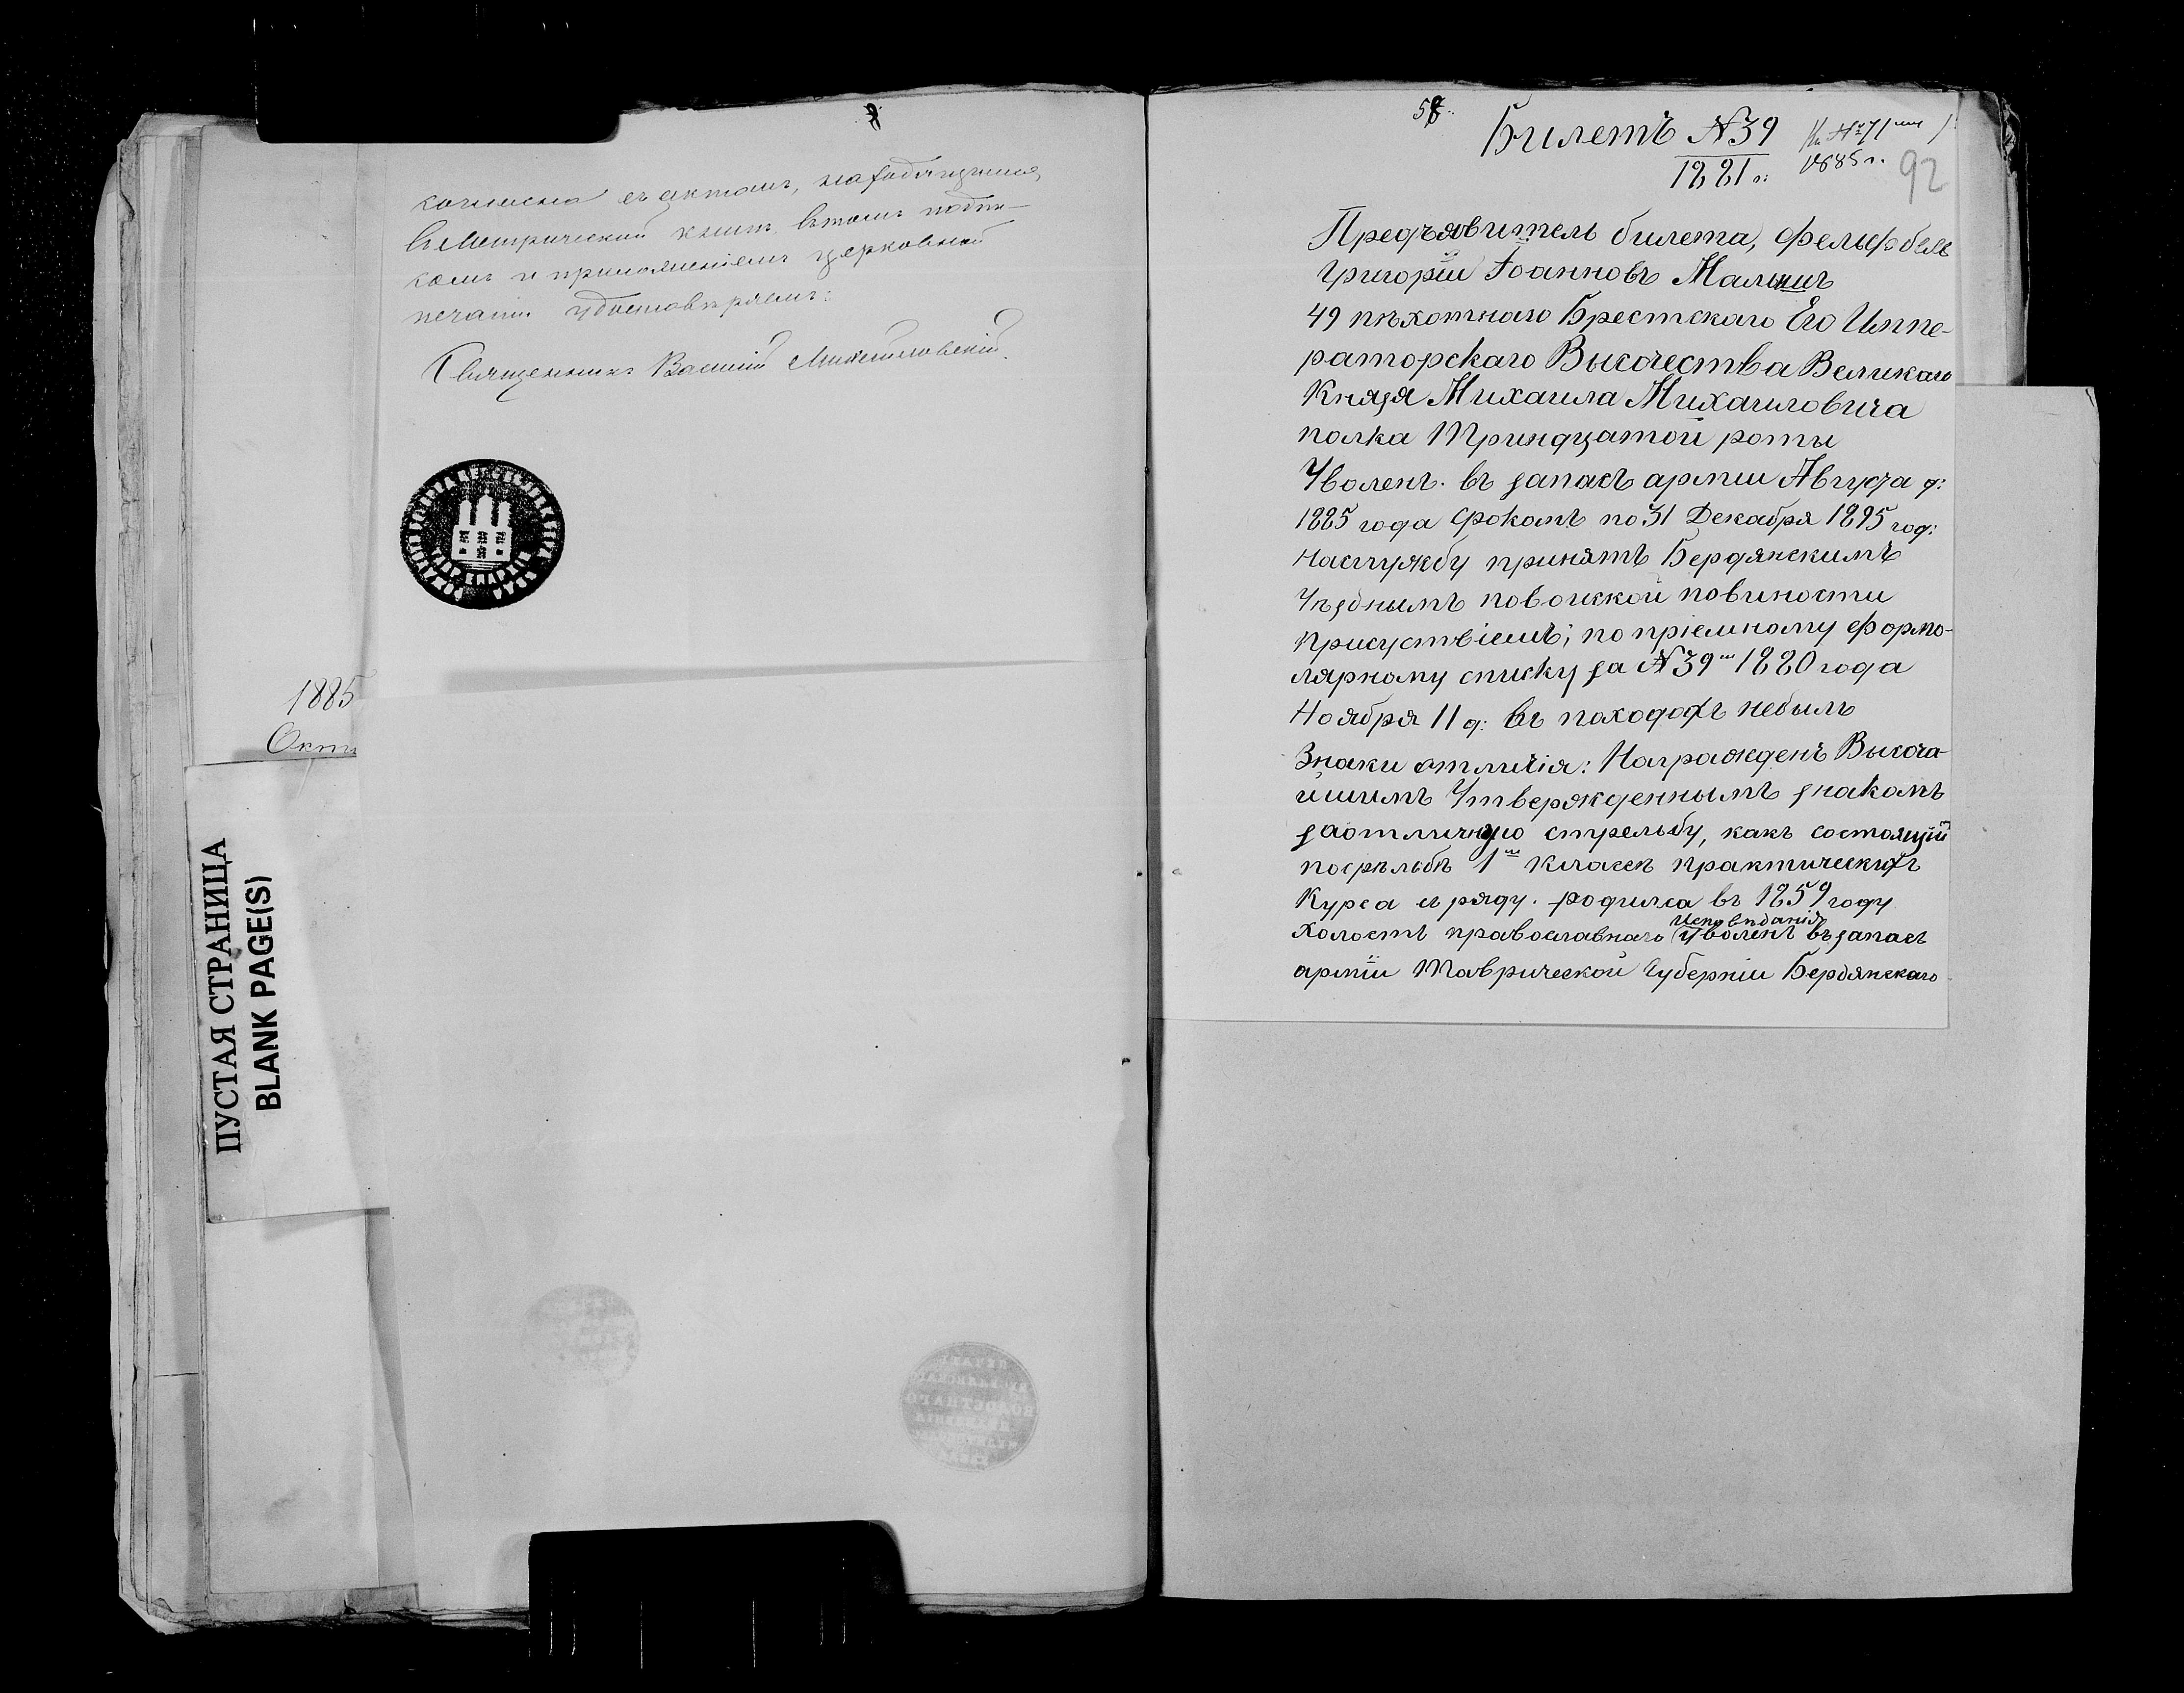 согласна съ актомъ, находящимся
въ Метрической книге, въ томъ подпи-
сомъ и приложеніемъ церковной
печати удостоверяемъ:
Священникъ Василій
1885
Октя
ПУСТАЯ СТРАНИЦА
BLANK PAGE(S)
Билетъ №39 На №71
1881 г: 1885 г. 92
Предъявитель билета, Фельдфебель
Григорій Іоанновъ
49 пѣхотнаго Брестскаго Его Импе-
раторскаго Высочества Великаго
Князя Михаила Михаиловича
полка Триндцатой роты
Уволенъ. въ запасъ арміи Августа д:
1885 года срокомъ по 31 Декабря 1895 год:
наслужбу принятъ Бердянскимъ
Уѣзднымъ повоиской повиности
Присуствіемъ; по пріемному формо-
лярному списку за №39 1880 года
Ноября 11 д: въ походахъ небылъ
Знаки отличія: Награжденъ Высоча-
йшимъ Утвержденнымъ знакомъ
заотличную стрельбу, какъ состоящій
1 класса практическихъ
Курса съ ряду. родился въ 1859 году
Исповѣданія
холостъ православнаго уволенъ въ запасъ
арміи Таврической Губерніи Бердянскаго